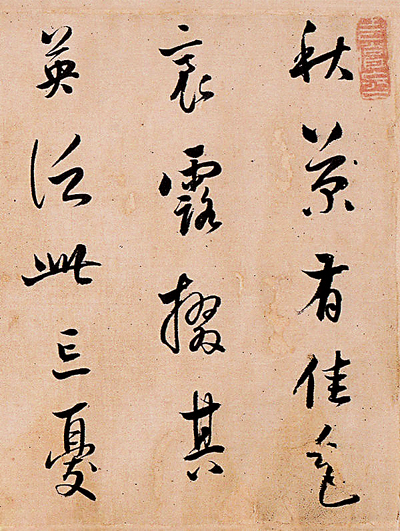 秋菊有佳色
裛露掇其
英泛此忘憂